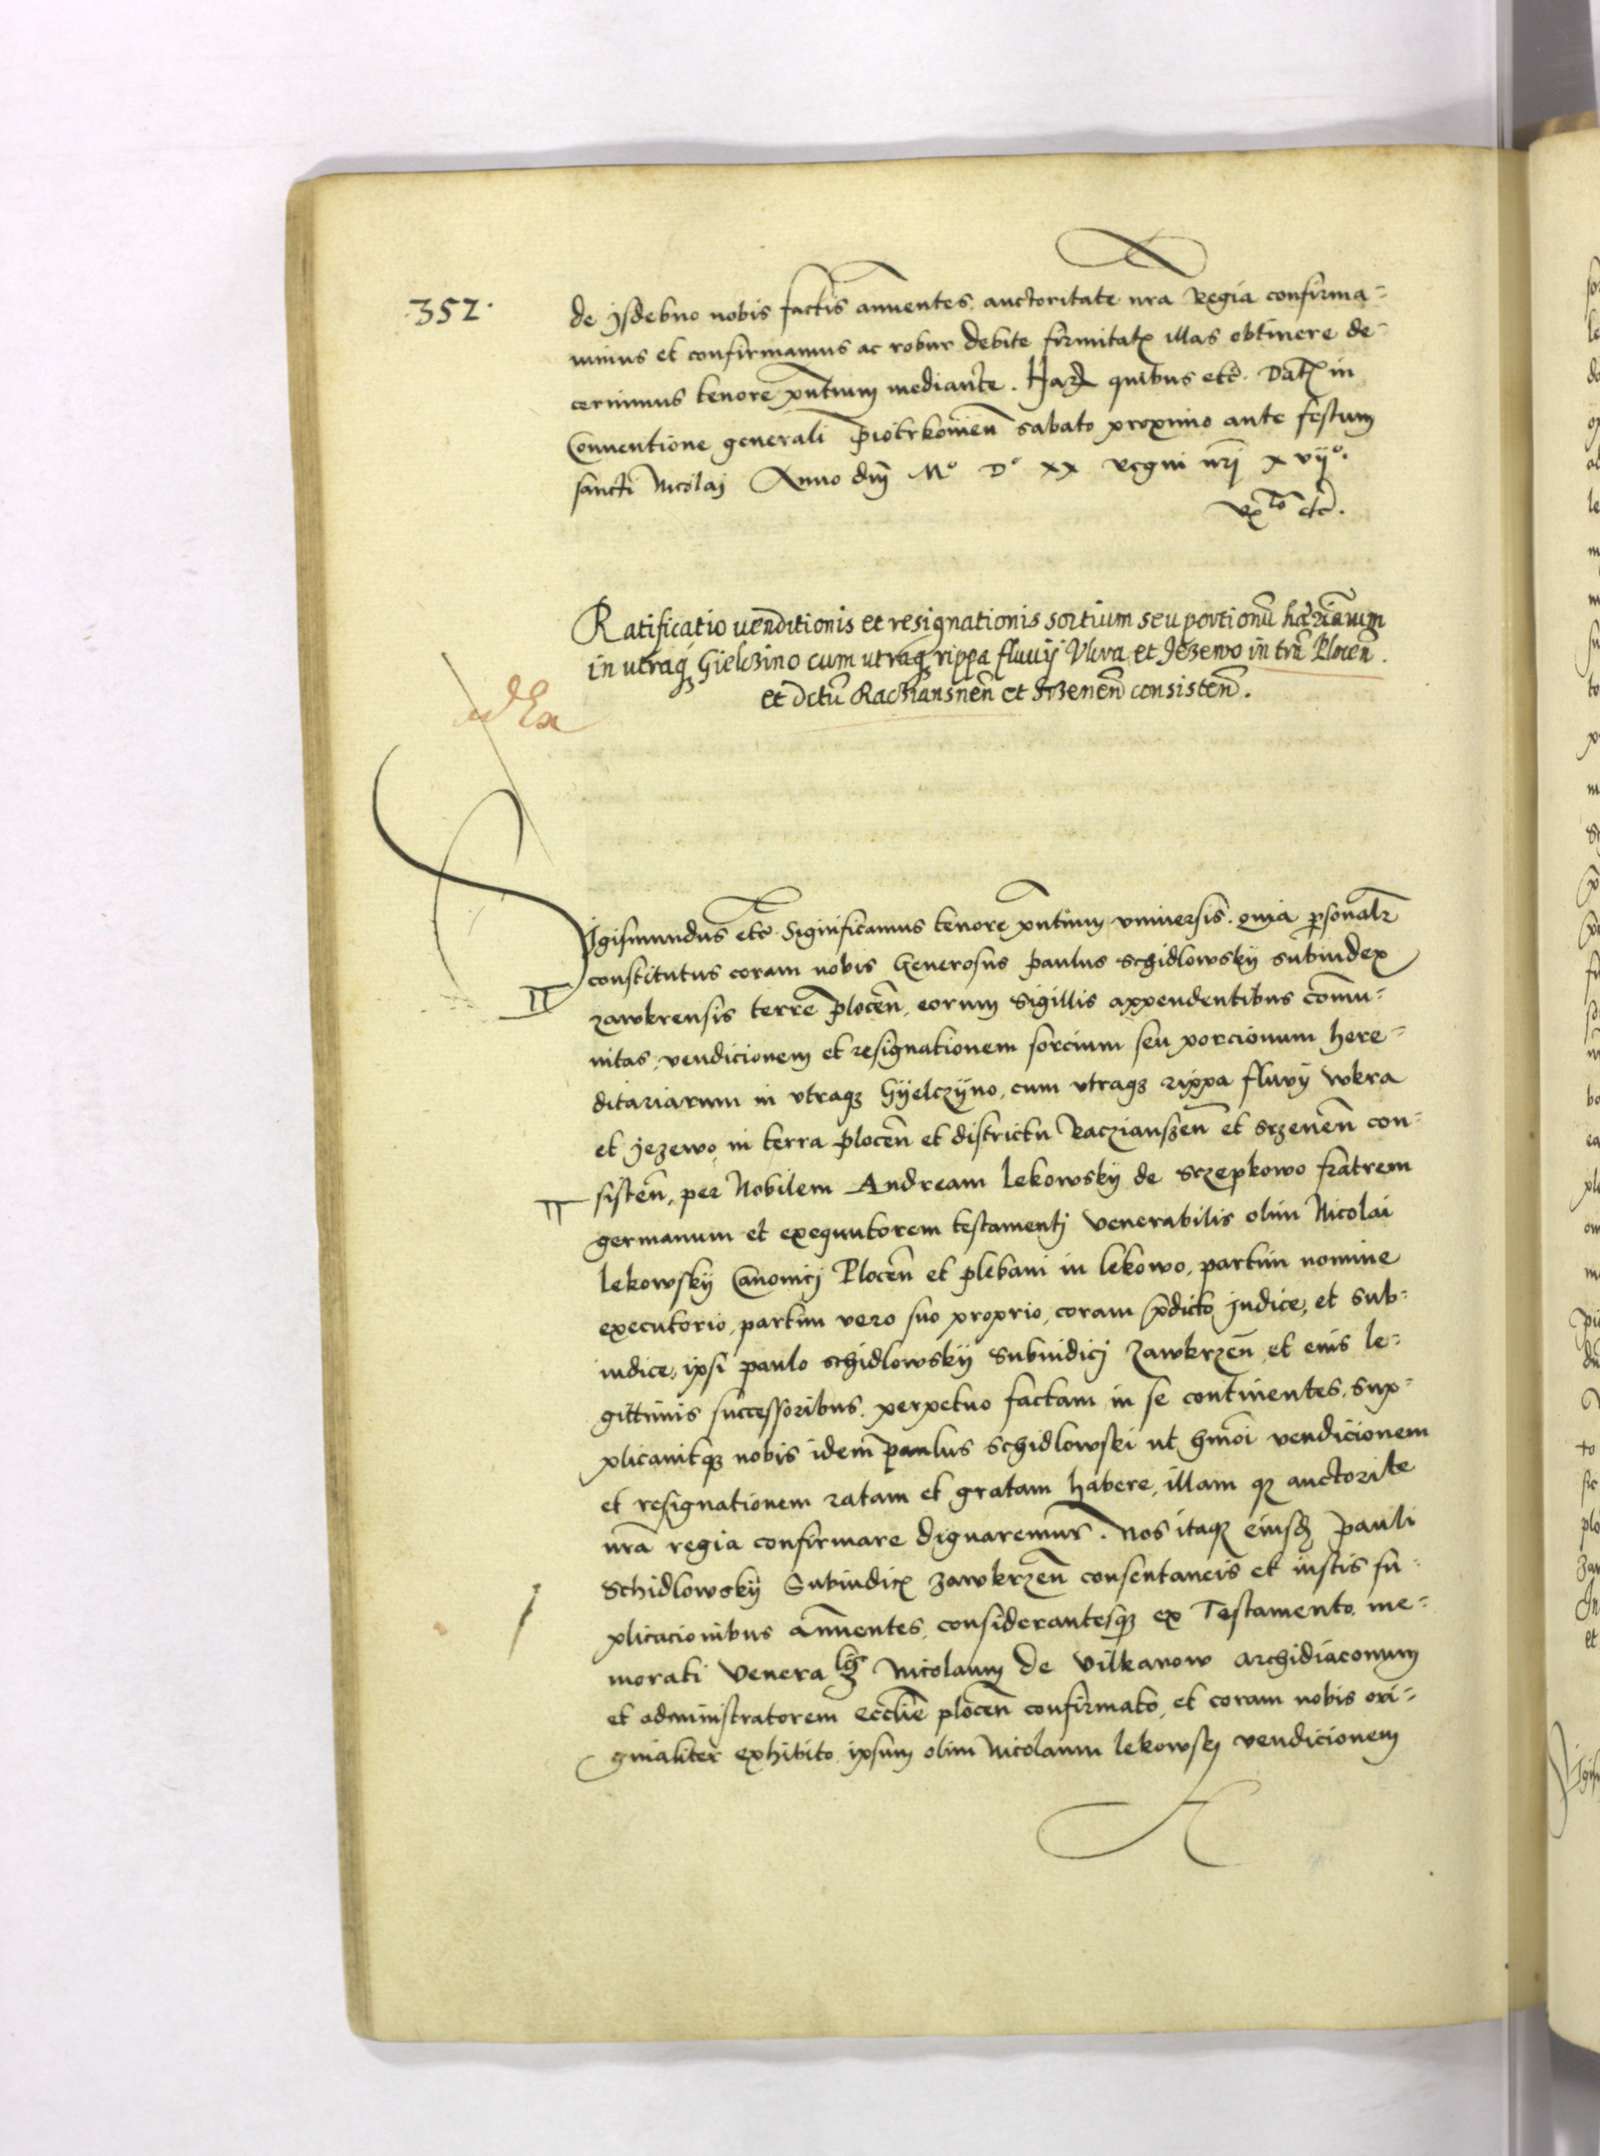 .352.
de Jsdebno nobis factis annuentes, auctoritate nra Regia confirma-
uimus et confirmamus ac robur debite firmitatꝭ illas obtinere de-
cernimus tenore pntium mediante. Harꝝ quibus etc. Datꝭ in
Conuentione generali Piotrkouien̄ sabato proximo ante festum
sancti Nicolai Anno dnj Mº Dº xx regni nrj xvijº.
Rto etc.
Ratificatio uenditionis et resignationis sortium seu portionū hæriarum
in utraqꝫ Gielczino cum utraqꝫ rippa fluuij Vkra et Jezewo in trā Plocen̄.
et dctū Racziansnen̄ et Srzenen̄ consisten̄.
Sigismundus etc. Significamus tenore pntium vniuersis. quia p̱sonalr̄
constitutus coram nobis Generosus paulus schidlowskij subiudex
zawkrensis terre plocen̄, eorum sigillis appendentibus commu-
nitas, vendicionem et resignationem sorcium seu porcionum here-
ditariarum in vtraqꝫ Gijelczijno, cum vtraqꝫ rippa fluvij wkra
et Jezewo, in terra plocen̄ et districtu Raczianszen̄ et Srzenen̄ con-
sisten̄, per Nobilem Andream lekowskij de Sczepkowo fratrem
germanum et exequutorem testamentj venerabilis olim Nicolai
lekowskij Canonicj Plocen̄ et plebani in lekowo, partim nomine
executorio, partim vero suo proprio, coram p̄dicto judice, et sub-
iudice, ipsi paulo schidlowskij subiudicj zawkrzen̄ et eius le-
gittimis successoribus, perpetuo factam in se continentes, sup-
plicauitqꝫ nobis idem paulus schidlowski ut hmōi vendicionem
et resignationem ratam et gratam habere, illam qꝫ auctorite
nrā regia confirmare dignaremur. Nos itaqꝫ eiusdꝫ pauli
schidlowskij Subiudicꝭ zawkrzen̄ consentaneis et iustis su-
plicacionibus annuentes, considerantesqꝫ ex Testamento me-
morati Venera lꝫ Nicolaum de vilkanow archidiaconum
et administratorem eccliē plocen̄ confirmato, et coram nobis ori-
ginaliter exhibito, ipsum olim Nicolaum lekowskj vendicionem